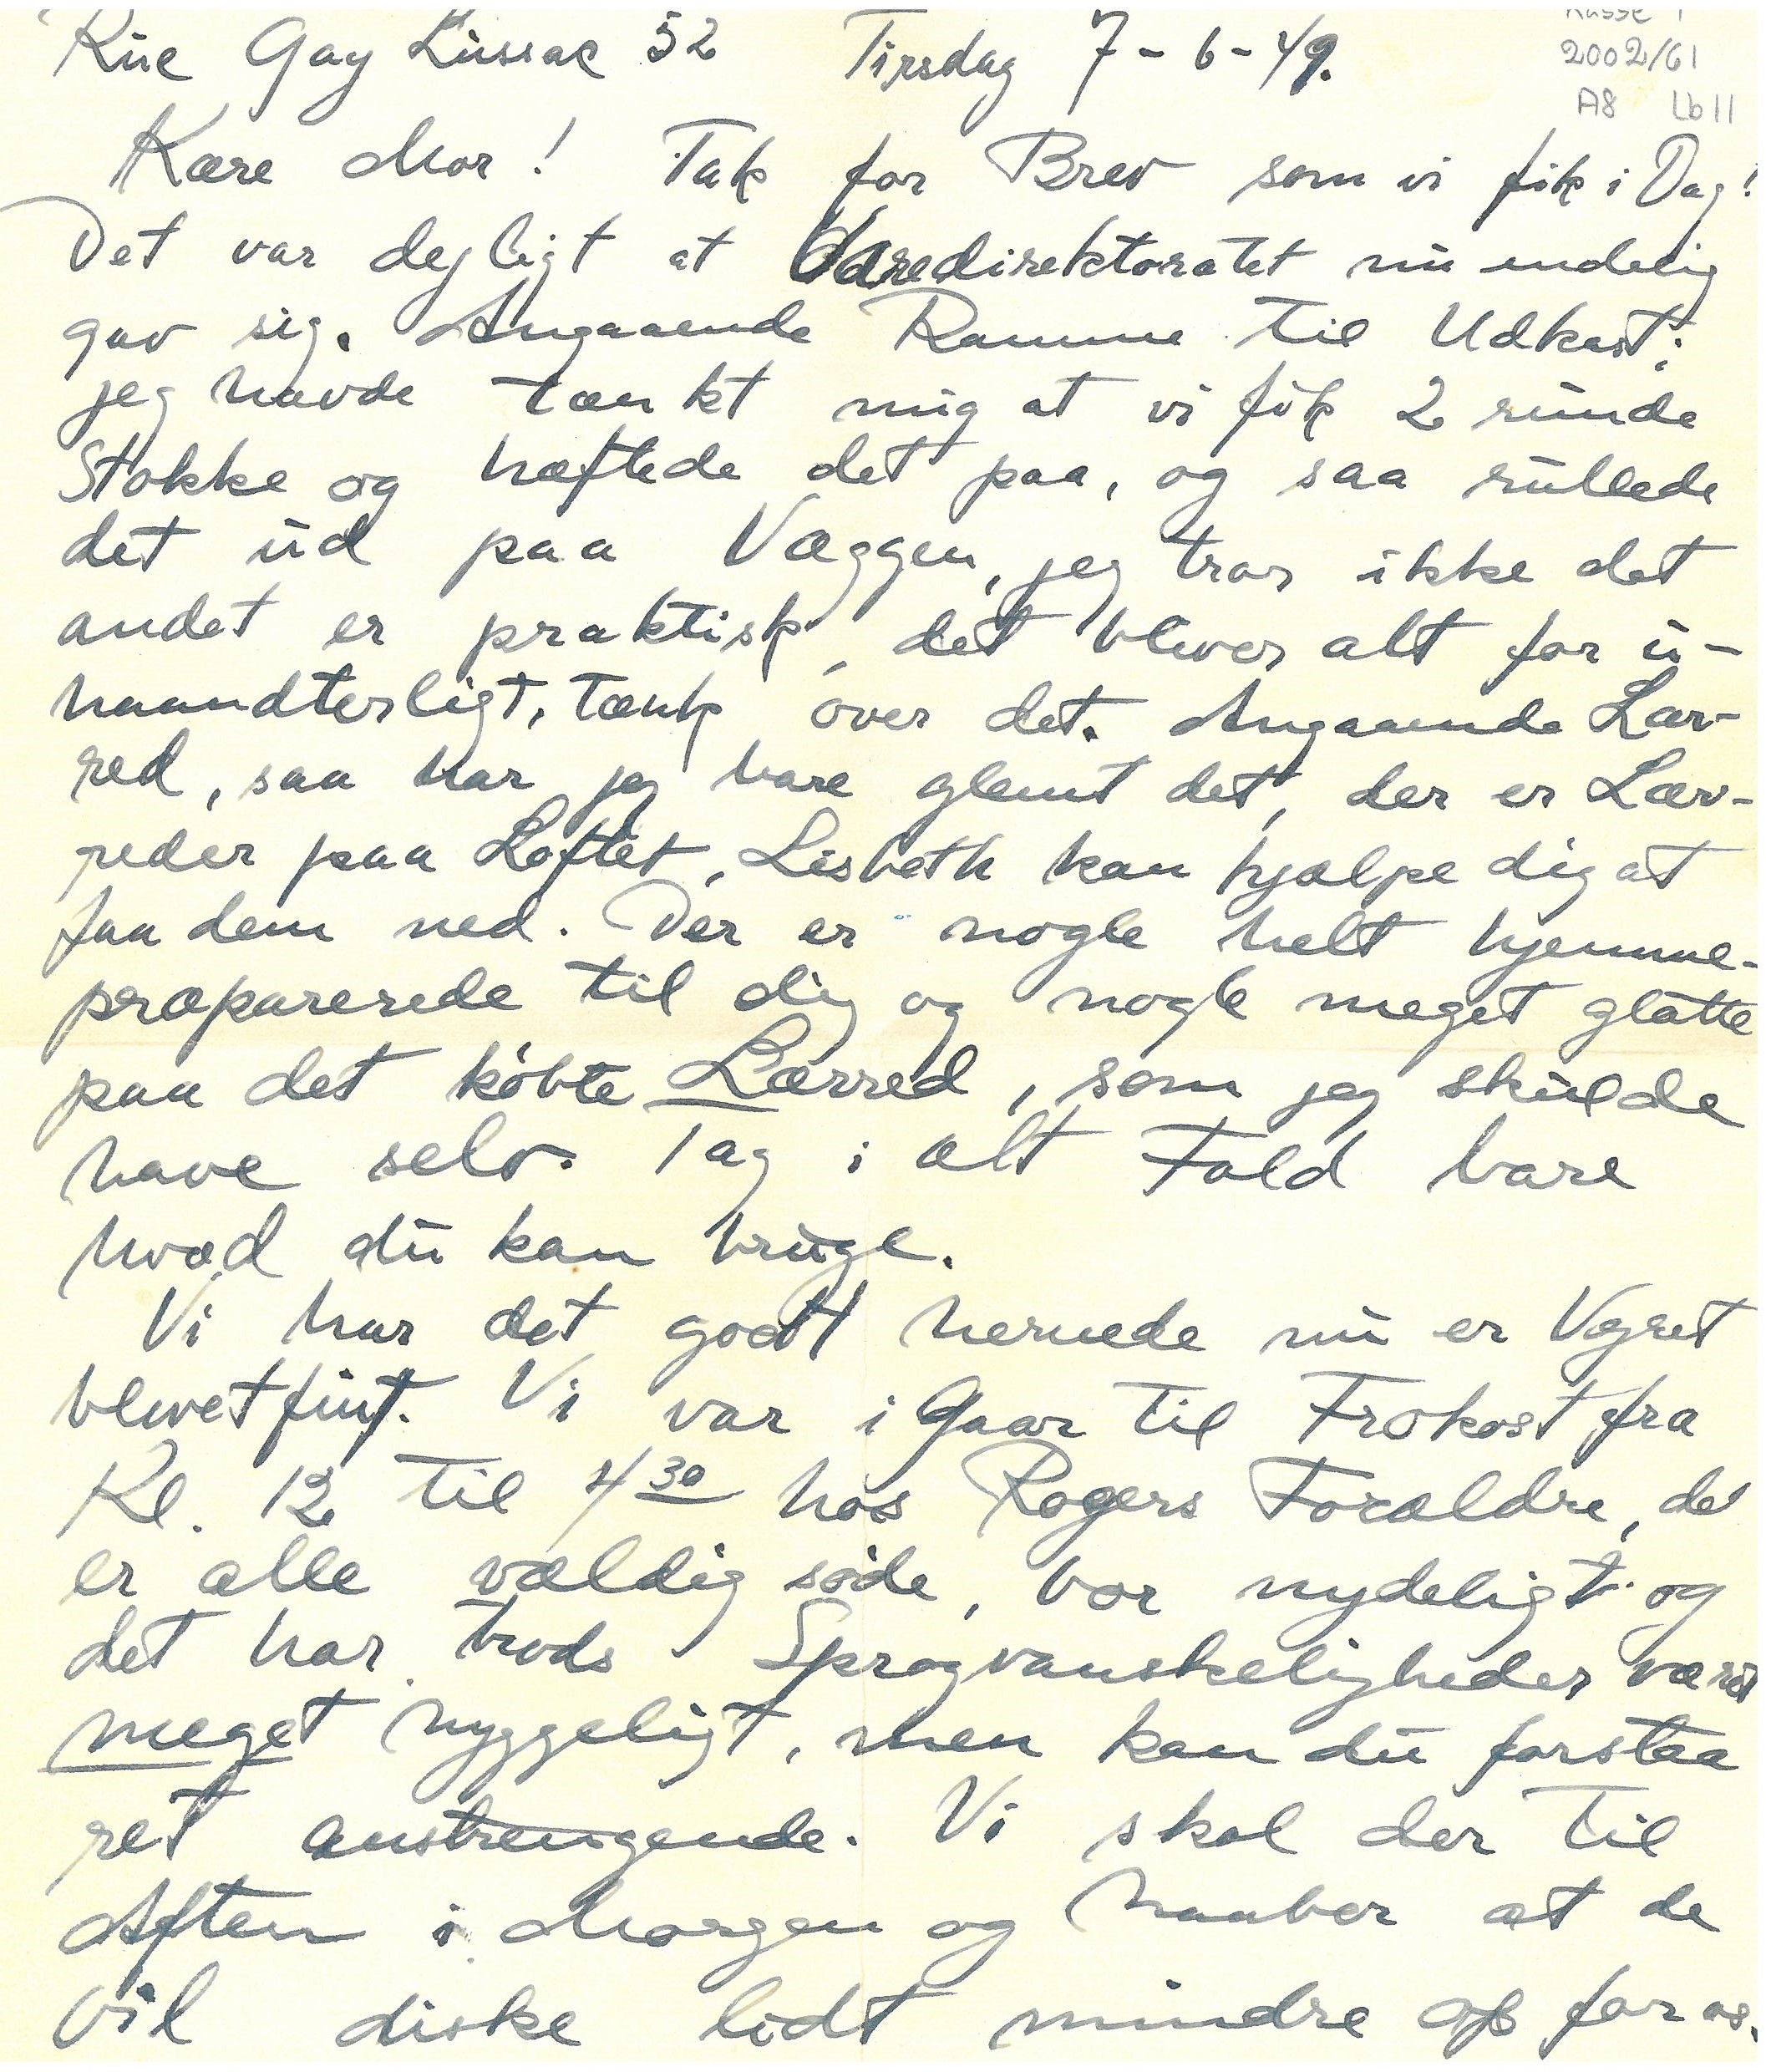 Rue Gay Lussac 52 Tirsdag 7-6-49.
2002/61
A8 Lb11
Kære Mor! Tak for Brev som vi fik i Dag!
Det var dejligt at Varedirektoratet nu endelig
gav sig. Angaaende Ramme til Udkast;
jeg havde tænkt mig at vi fik 2 runde
Stokke og hæftede det paa, og saa rullede
det ud paa Væggen, jeg tror ikke det
andet er praktisk, det bliver alt for u-
haandterligt, tænk over det. Angaaende Lær-
red, saa har jeg bare glemt det, der er Lær-
reder paa Loftet, Lisbeth kan hjælpe dig at
faa dem ned. Der er nogle helt hjemme-
præparerede til dig og nogle meget glatte
paa det købte Lærred, som jeg skulde
have selv. Tag i alt Fald bare
hvad du kan bruge.
Vi har det godt hernede nu er Vejret
blevet fint. Vi var i Gaar til Frokost fra
Kl. 12 til 4 30 hos Rogers Forældre, de
er alle vældig søde, bor nydeligt og
det har trods Sprogvanskeligheder været
meget hyggeligt, men kan du forstaa
ret anstrengende. Vi skal der til
Aften i Morgen og haaber at de
vil diske lidt mindre op for os.